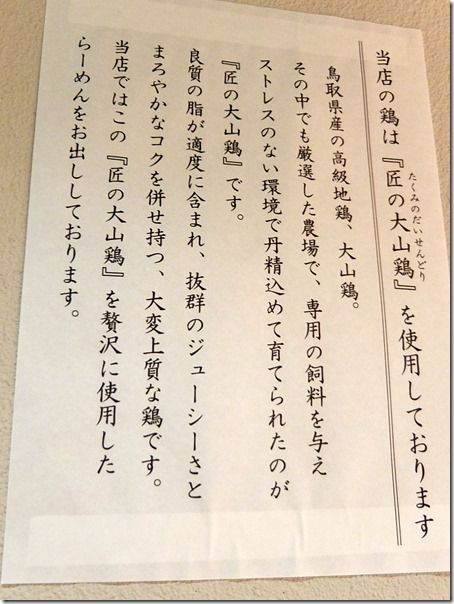 当店の鶏は『匠の大山鶏』を使用しております
たくみのだいせんどり
鳥取県産の高級地鶏、大山鶏。
その中でも厳選した農場で、専用の飼料を与え
ストレスのない環境で丹精込めて育てられたのが
『匠の大山鶏』です。
良質の脂が適度に含まれ、抜群のジューシーさと
まろやかなコクを併せ持つ、大変上質な鶏です。
当店ではこの『匠の大山鶏』を贅沢に使用した
らーめんをお出ししております。